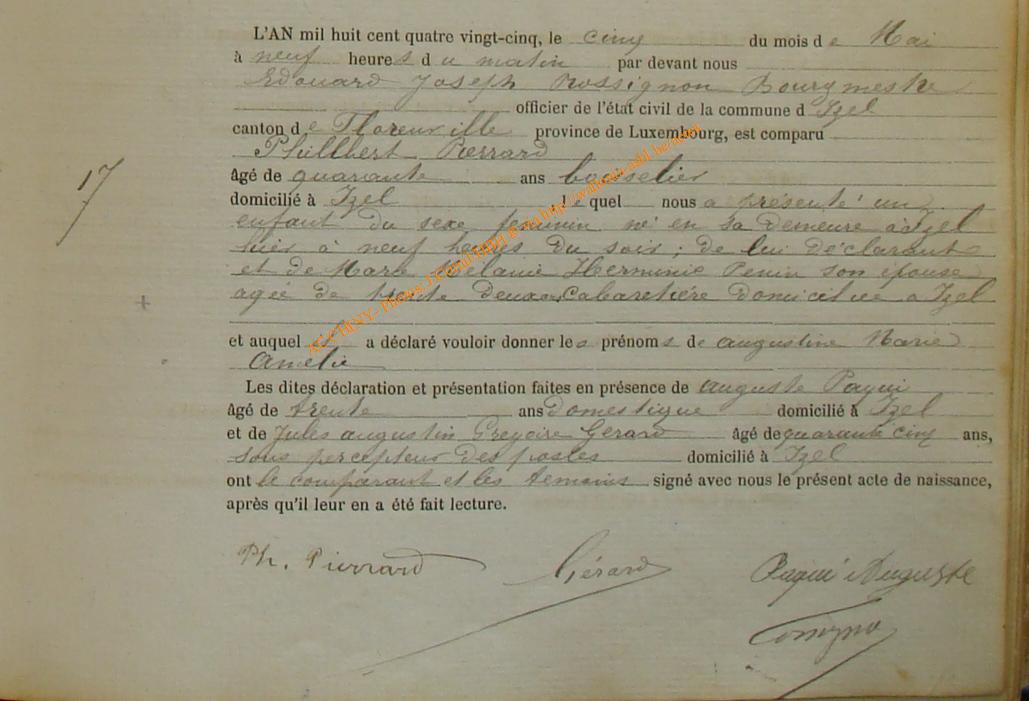 L'AN mil huit cent quatre vingt-cinq, le cinq du mois de Mai
à neuf heures du matin par devant nous
Edouard Joseph Rossignon Bourgmestre
officier de l'état civil de la commune d Izel
canton de Florenville province de Luxembourg, est comparu
Philibert Pierrard
17
âgé de quarante ans bourrelier
domicilié à Izel lequel nous a présenté un
enfant du sexe feminin né en sa demeure à Izel
hier à neuf heures du soir; de lui déclarant
et de Marie Mélanie Herminie Penin son épouse
agée de trente deux ans, cabaretière domiciliée a Izel
et auquel il a déclaré vouloir donner les prénoms de augustine Marie
Amélie
Les dites déclaration et présentation faites en présence de auguste Paqui
âgé de trente ans domestique domicilié à Izel
et de Jules augustin Gregoire Gerard âgé de quarante cinq ans,
sous percepteur des postes domicilié à Izel
ont le comparant et les temoins signé avec nous le présent acte de naissance,
après qu'il leur en a été fait lecture.
Ph. Pierrard Gérard Paqui Auguste